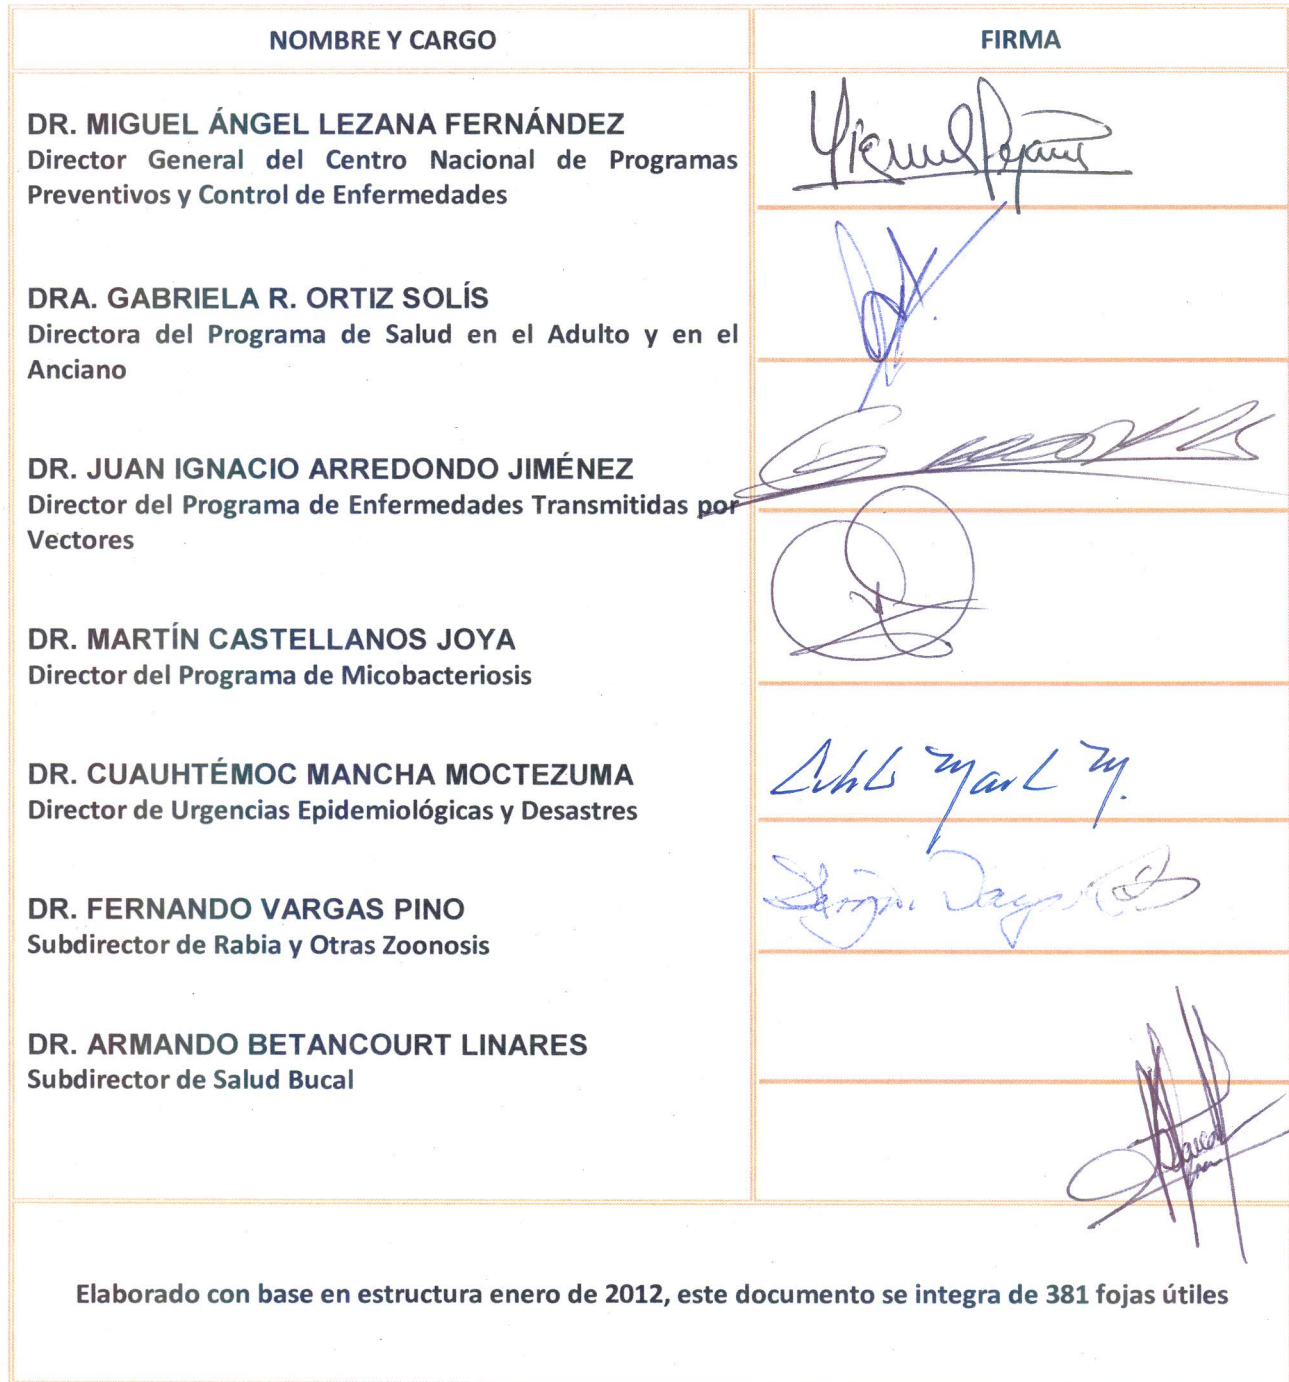 NOMBRE Y CARGO
FIRMA
DR. MIGUEL ÁNGEL LEZANA FERNÁNDEZ
Director General del Centro Nacional de Programas
Preventivos y Control de Enfermedades
DRA. GABRIELA R. ORTIZ SOLÍS
Directora del Programa de Salud en el Adulto y en el
Anciano
DR. JUAN IGNACIO ARREDONDO JIMÉNEZ
Director del Programa de Enfermedades Transmitidas por
Vectores
DR. MARTÍN CASTELLANOS JOYA
Director del Programa de Micobacteriosis
DR. CUAUHTÉMOC MANCHA MOCTEZUMA
Director de Urgencias Epidemiológicas y Desastres
DR. FERNANDO VARGAS PINO
Subdirector de Rabia y Otras Zoonosis
DR. ARMANDO BETANCOURT LINARES
Subdirector de Salud Bucal
Elaborado con base en estructura enero de 2012, este documento se integra de 381 fojas útiles